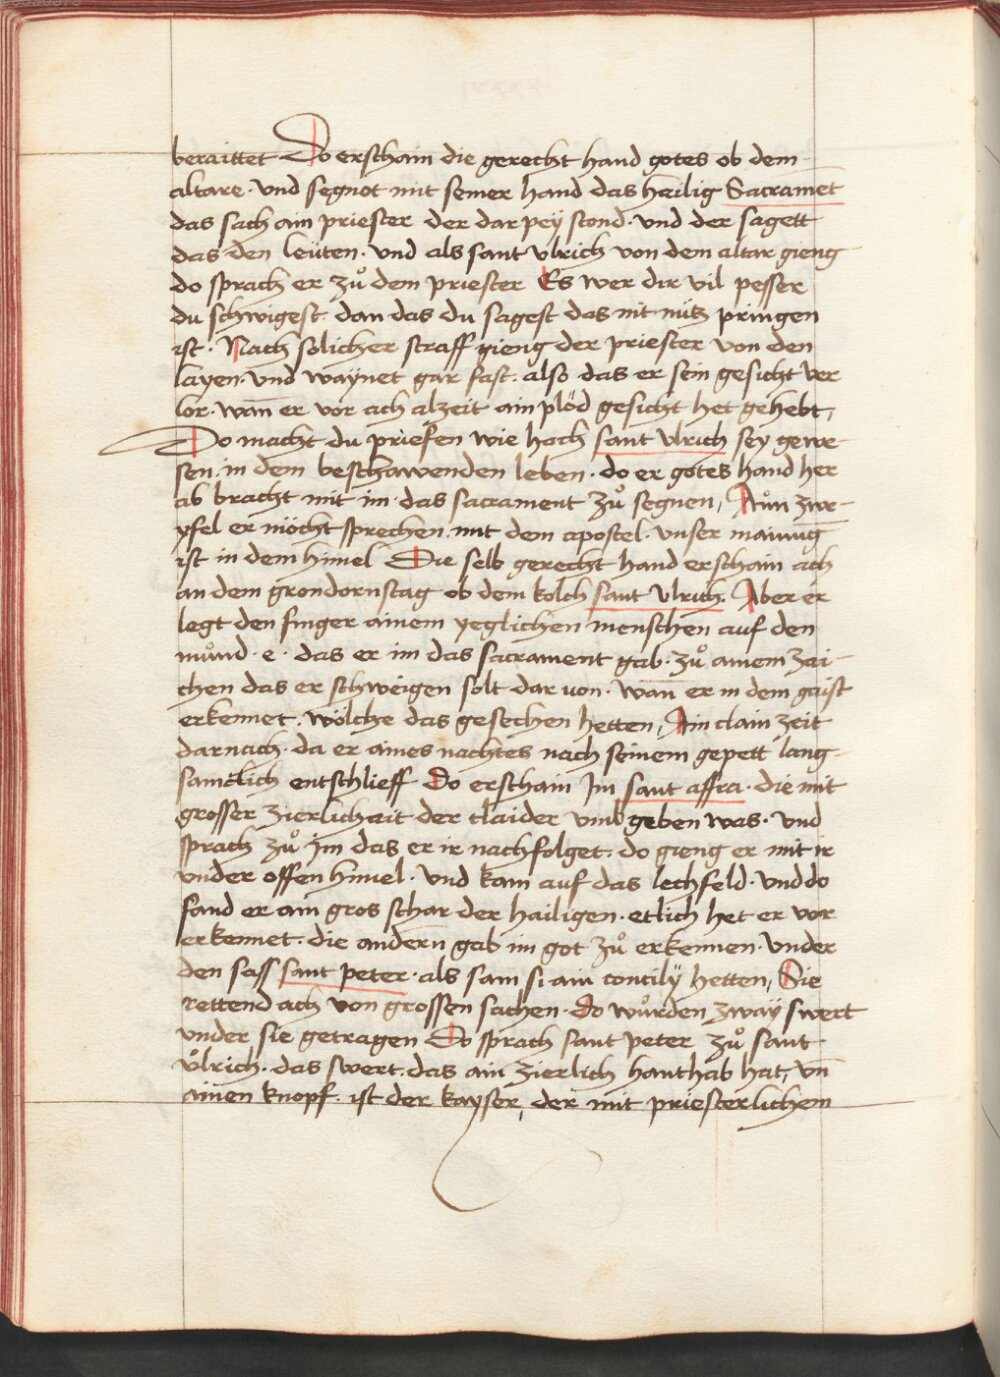 beraittet Do erschain die gerecht hand gotes ob dem
altare · vnd segnot mit seiner hand das hailig Sacramēt
das sach ain priester der dar peÿ stond · vnd der sagett
das den leüten · vnd als sant vlrich von dem altar gieng
do sprach er zů dem priester Es wer dir vil pesser
du schwigest dan das du sagest das nit nütz pringen
ist · Nach solicher straff gieng der priester von den
layen · vnd waÿnet gar fast · also das er sein gesicht ver
lor · wan̄ er vor ach alzeit ain plöd gesicht het gehebt,
Do macht du priefen wie hoch sant vlrich seÿ gewe-
sen · in dem beschawenden leben · do er gotes hand her
ab bracht mit im · das sacrament zů segnen, Aůn zwe-
yfel er möcht sprechen mit dem apostel · vnser mainūg
ist in dem himel Die selb gerecht hand erschain ach
an dem grondornstag ob dem kolch sant vlrich. Aber er
legt den finger ainem yeglichen menschen auf den
můnd · e · das er im das sacrament gab · zů ainem zai-
chen das er schweigen solt dar von · wan̄ er in dem gaist
erkennet · wölche das gesechen hetten, Ain clain zeit
darnach · da er aines nachtes nach seinem gepett lang-
samclich entschlieff Do erschain Im sant affra · die mit
grosser zierlichait der claider vmbgeben was · vnd
sprach zů im das er ir nachfolget · do gieng er mit ir
vnder offen himel · vnd kam auf das lechfeld · vnd do
fand er ain gros schar der hailigen · etlich het er vor
erkennet · die andern gab im got zů erkennen · vnder
den sass sant peter · als sam si ain concilÿ hetten, Sie
rettend ach von grossen sachen · do wůrden zwaÿ swert
vnder sie getragen Do sprach sant peter zů sant
vlrich · das swert · das ain zierlich hanthab hat, vn̄
ainen knopf · ist der kayser, der mit priesterlichem